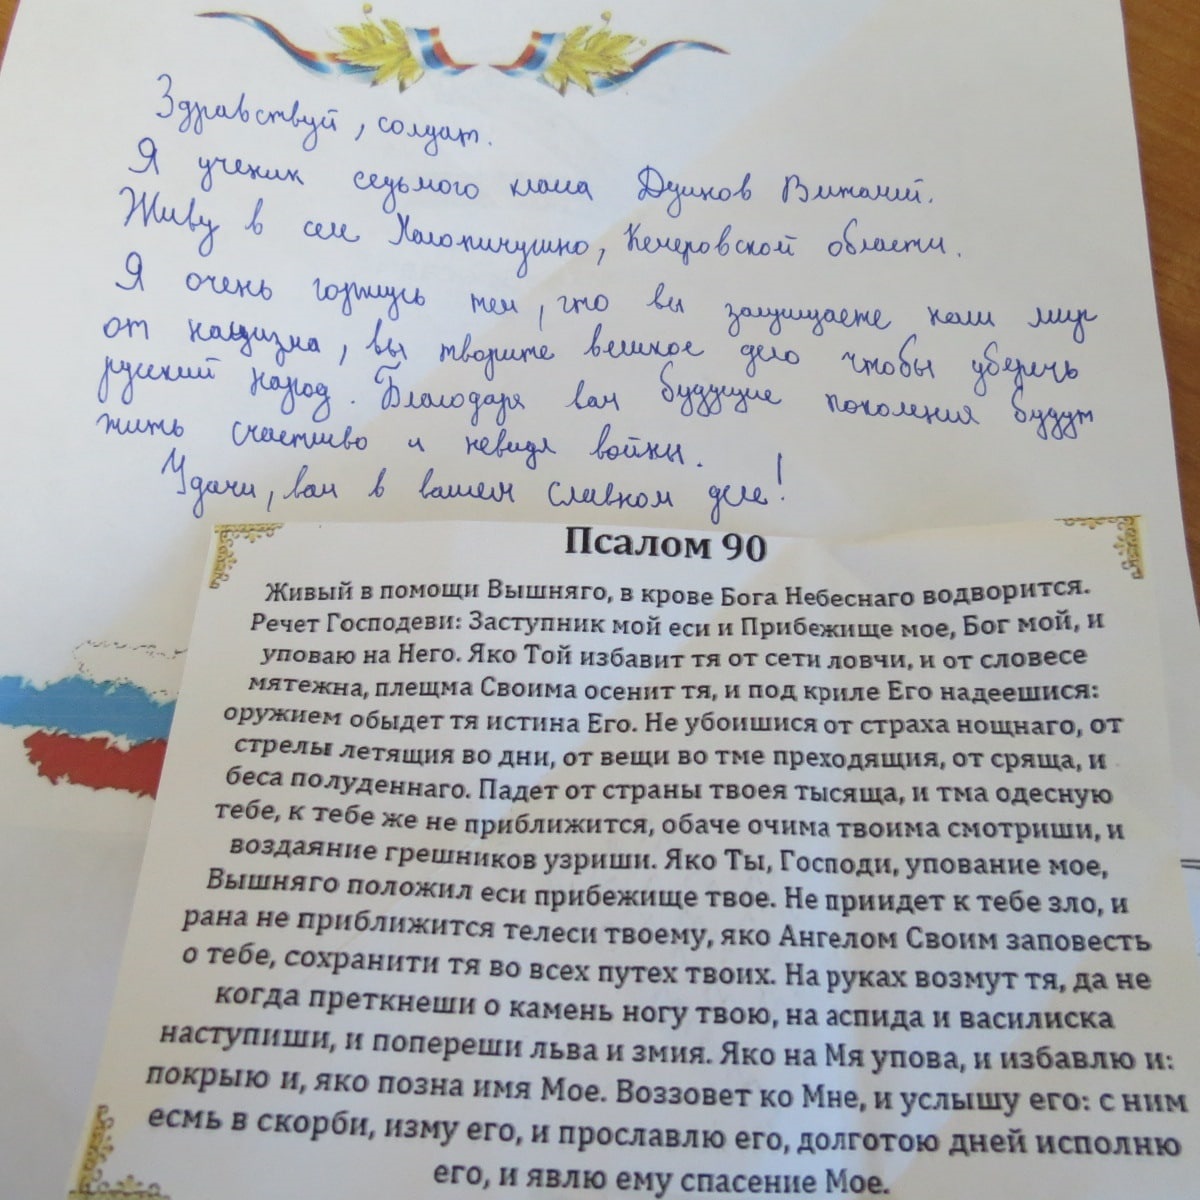 Здравствуй, солдат.
Я ученик седьмого класса Виталий.
Живу в селе Кемеровской области.
Я очень горжусь тем, что вы защищаете наш мир
от нацизма, вы творите великое дело чтобы уберечь
русский народ. Благодаря вам будущие поколения будут
жить счастливо и невидя войны.
Удачи, вам в вашем славном деле!
Псалом 90
Живый в помощи Вышняго, в крове Бога Небеснаго водворится.
Речет Господеви: Заступник мой еси и Прибежище мое, Бог мой, и
уповаю на Него. Яко Той избавит тя от сети ловчи, и от словесе
мятежна, плещма Своима осенит тя, и под криле Его надеешися:
оружием обыдет тя истина Его. Не убоишися от страха нощнаго, от
стрелы летящия во дни, от вещи во тме преходящия, от сряща, и
беса полуденнаго. Падет от страны твоея тысяща, и тма одесную
тебе, к тебе же не приближится, обаче очима твоима смотриши, и
воздаяние грешников узриши. Яко Ты, Господи, упование мое,
Вышняго положил еси прибежище твое. Не приидет к тебе зло, и
рана не приближится телеси твоему, яко Ангелом Своим заповесть
о тебе, сохранити тя во всех путех твоих. На руках возмут тя, да не
когда преткнеши о камень ногу твою, на аспида и василиска
наступиши, и попереши льва и змия. Яко на Мя упова, и избавлю и:
покрыю и, яко позна имя Мое. Воззовет ко Мне, и услышу его: с ним
есмь в скорби, изму его, и прославлю его, долготою дней исполню
его, и явлю ему спасение Мое.